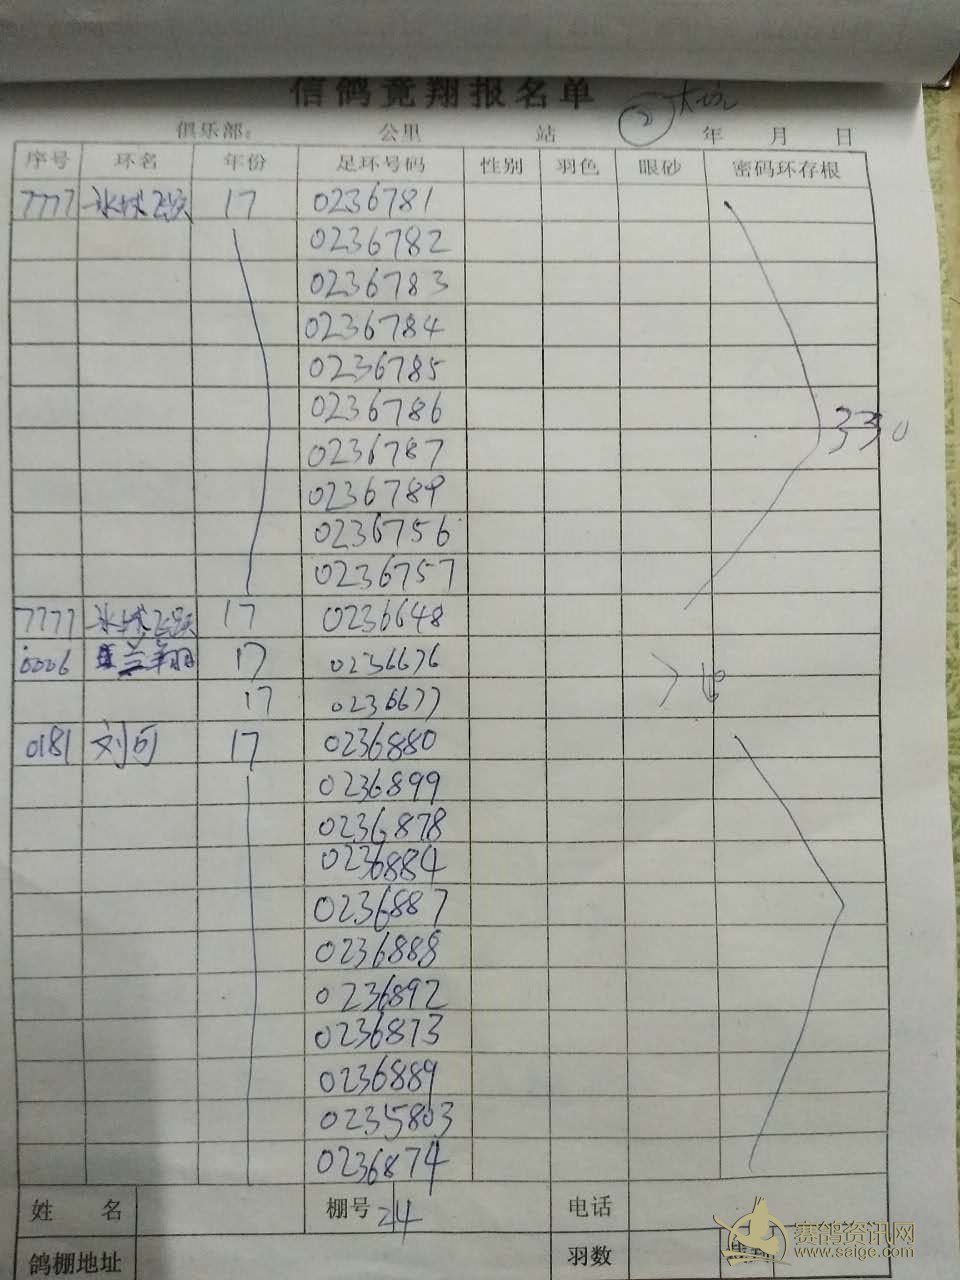 信鸽竞翔报名单
俱乐部: 公里 站 年 月 日
② 大坑
序号 环名 年份 足环号码 性别 羽色 眼砂 密码环存根
7777 冰城飞跃 17 0236781
0236782
0236783
0236784
0236785
0236786
0236787 330
0236789
0236756
0236757
7777 冰城飞跃 17 0236648
0006 兰翔 17 0236676
17 0236677
0181 刘可 17 0236880
0236899
0236878
0236884
0236887
0236888
0236892
0236873
0236889
0235803
0236874
姓 名 棚号 24 电话
鸽棚地址 羽数
赛鸽资讯网
www.saige.com